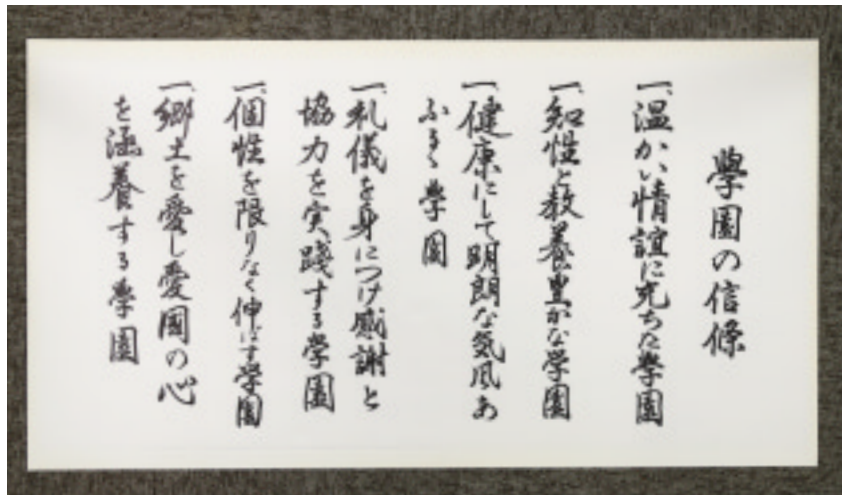 學園の信條
一、温かい情誼に充ちた學園
一、知性と教養豊かな学園
一、健康にして明朗な気風あ
ふるゝ學園
一、礼儀を身につけ感謝と
協力を実践する学園
一、個性を限りなく伸ばす学園
一、郷土を愛し愛國の心
を涵養する學園